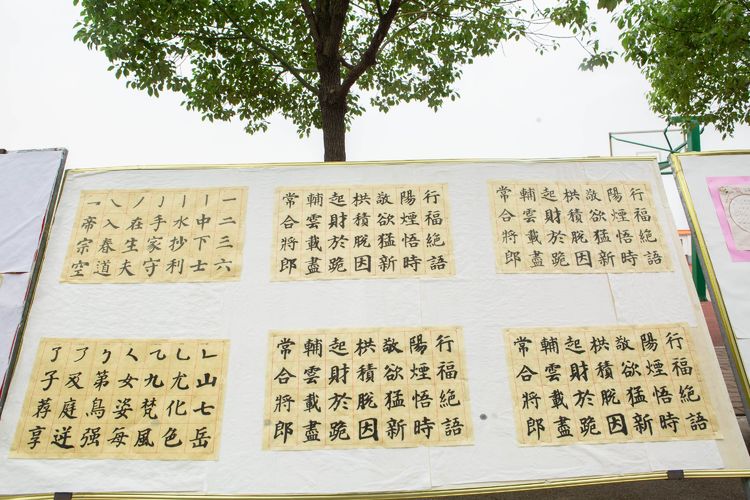 一二三六
丨中下士
水抄利
亅手家守
丿在生夫
㇏入春道
帝宗空
行福絶語
陽煙悟時
敬欲猛新
栱積脱因
起財於跪
輔雲載盡
常合將郎
行福絶語
陽煙悟時
敬欲猛新
栱積脱因
起財於跪
輔雲載盡
常合將郎
山七岳
乚尤化色
九梵風
女姿每
第鳥强
及庭
子荐享
行福絶語
陽煙悟時
敬欲猛新
栱積脱因
起財於跪
輔雲載盡
常合將郎
行福絶語
陽煙悟時
敬欲猛新
栱積脱因
起財於跪
輔雲載盡
常合將郎